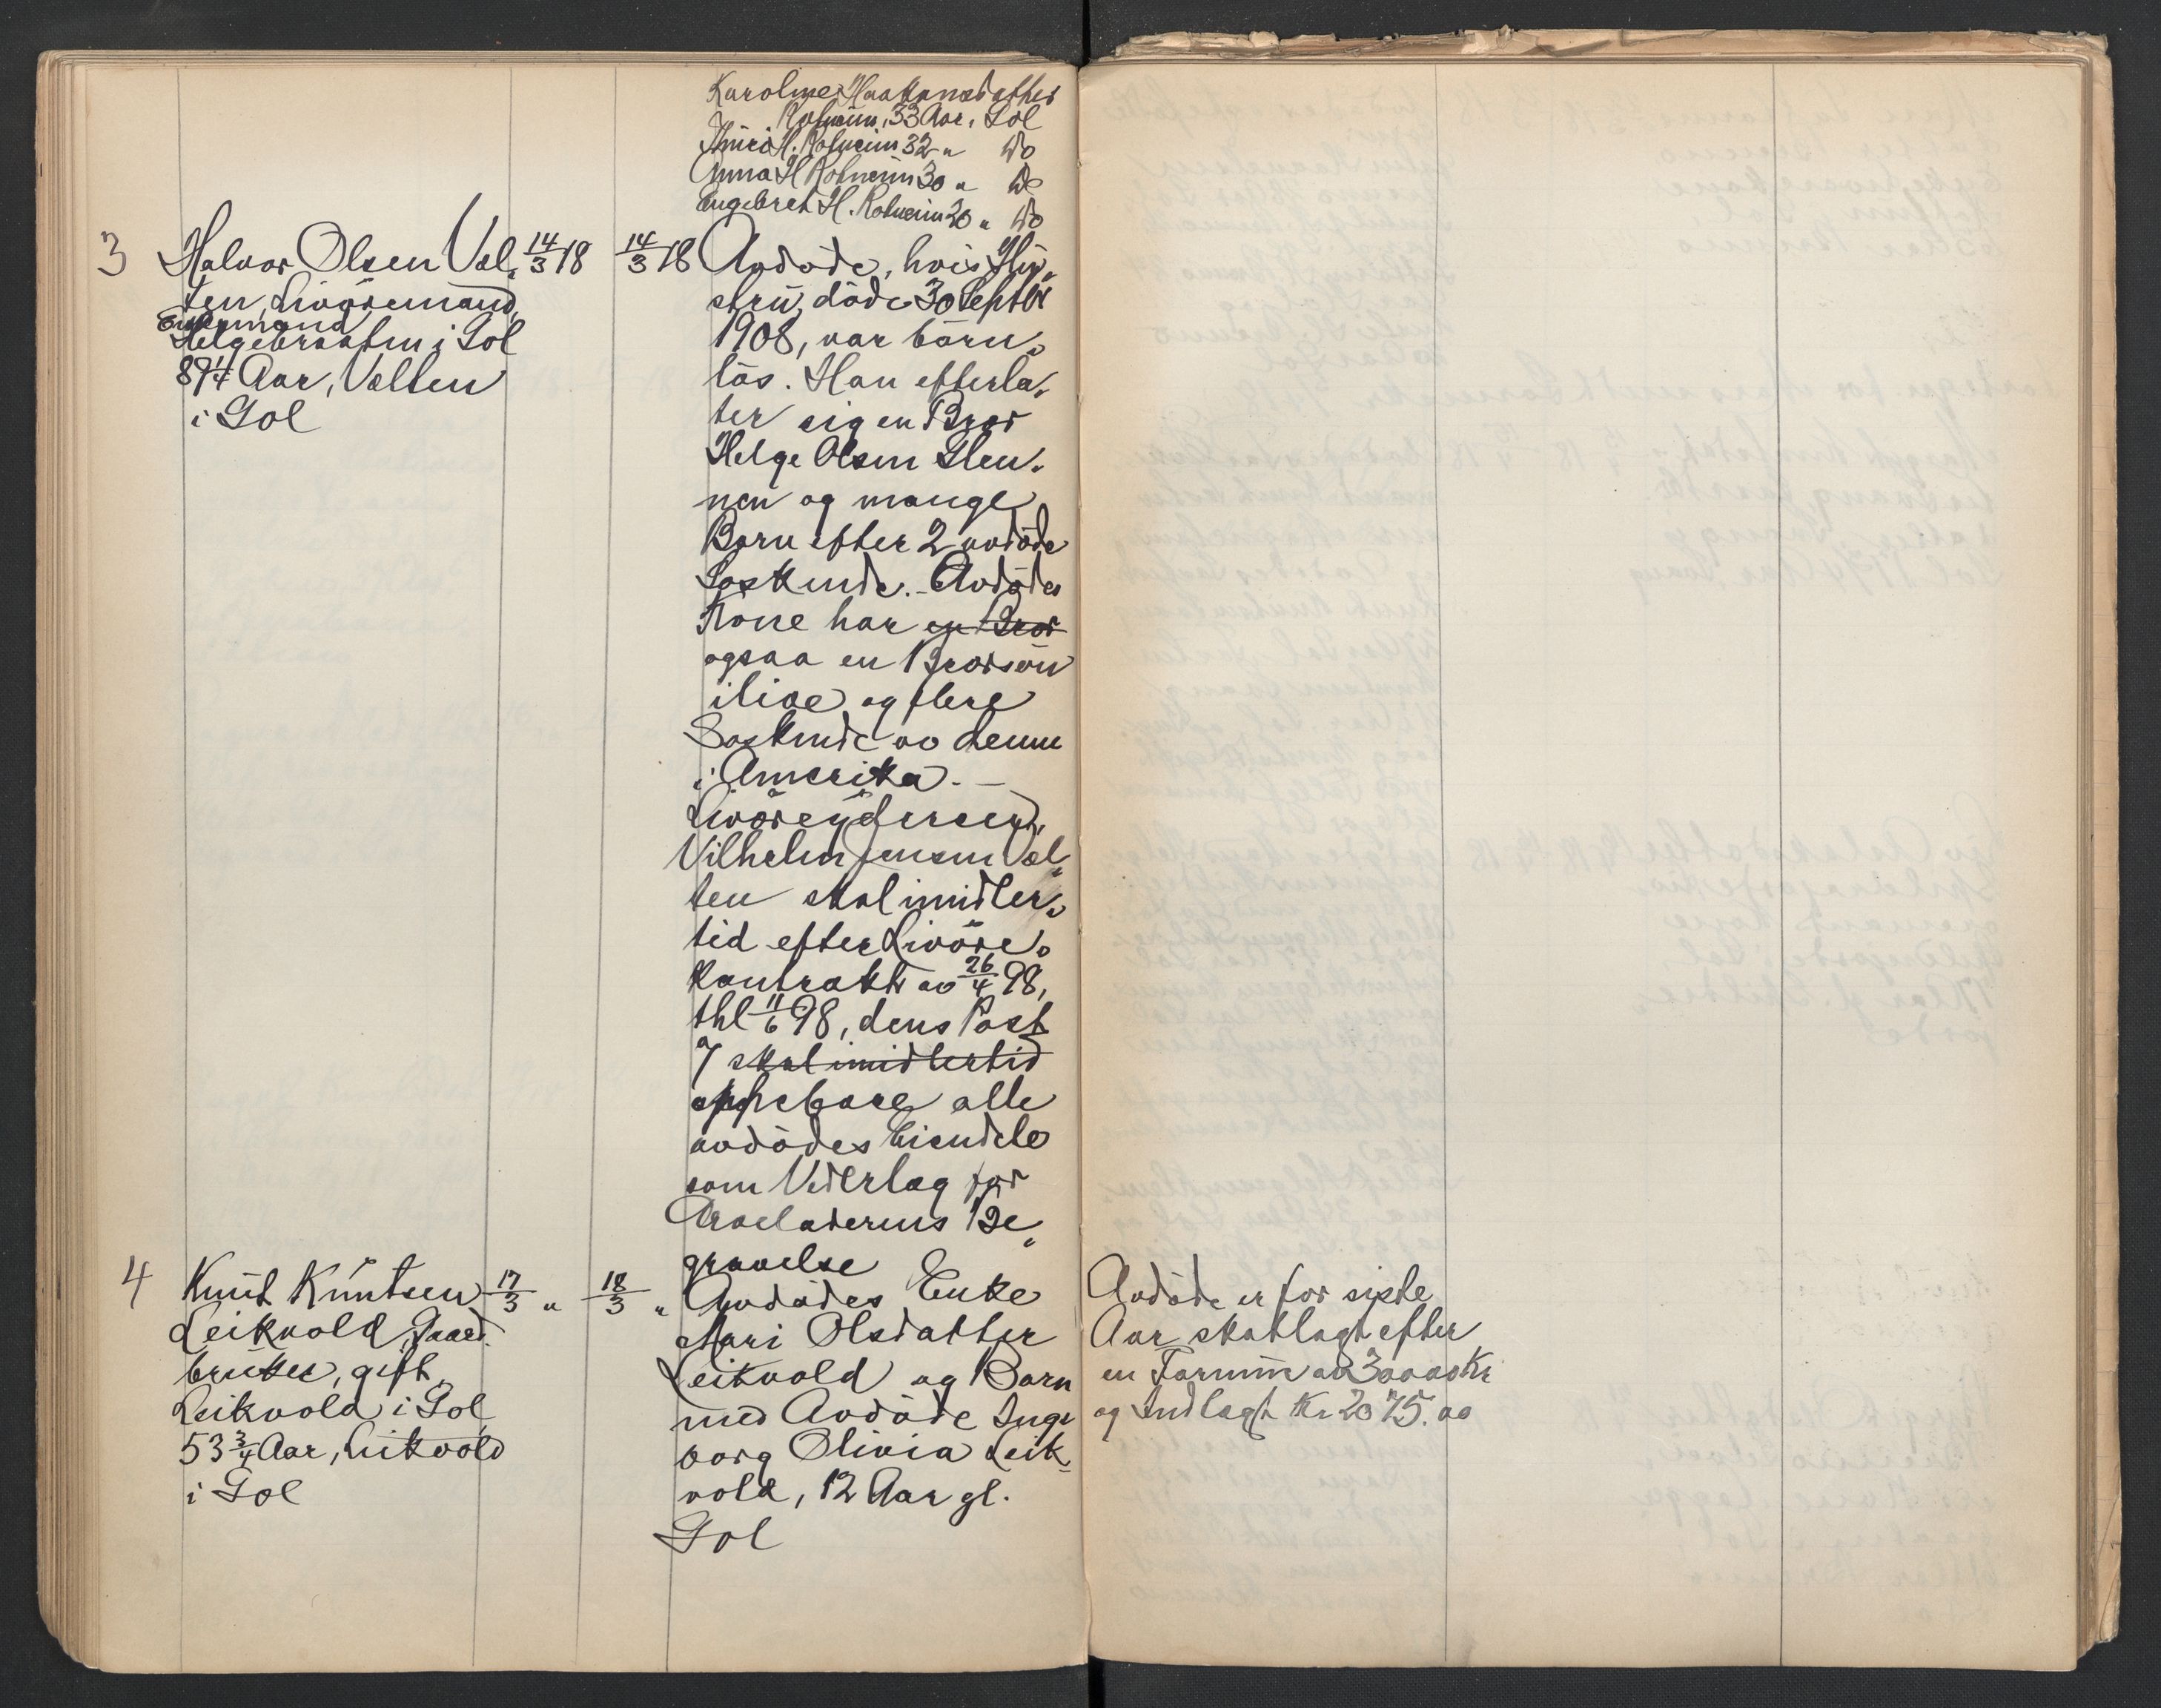 Karoline Haakonsdatter
Rotneim, 33 Aar, Gol
Thuri H. Rotneim 32 " Do
Anna H Rotneim 30 " Do
Engebret H. Rotneim 20 " Do
3 Halvor Olsen Vol„ 14/3 18 14/3 18
ten, Livøremand,
Enkemand
Helgebraaten i Gol
89 1/4 Aar, Volten
i Gol
Avdöde, hvis Hu„
stru döde 30 Septbr
1908, var börn„
lös. Han efterla„
ter sig en Bror
Helge Olsen
nen og mange
Born efter 2 avdöde
Soskende. - Avdödes
Kone har en Bror
ogsaa en Brorsön
ilive og flere
Soskende av denne
i Amerika. —
Livöreyderen,
Vilhelm Jensen Vol„
ten skal imidler„
tid efter Livöre„
kontrakt av 26/4 98,
thl 11/6 98, dens Post
7 skal imidlertid
oppebare alle
avdödes Eiendele
som Vederlag for
Arveladerens Be„
gravelse
4 Knut Knutsen 17/3 " 18/3 "
Leikvold, Gaard
bruker, gift,
Leikvold i Gol
53 3/4 Aar, Leikvold
i Gol
Avdödes Enke
Mari Olsdatter
Leikvold og Barn
med Avdöde Inge
borg Olivia Leik„
vold, 12 Aar gl.
Gol
Avdöde er for siste
Aar skatlagt efter
en Formue av 30000 Kr
og Indtægt Kr 2075.00